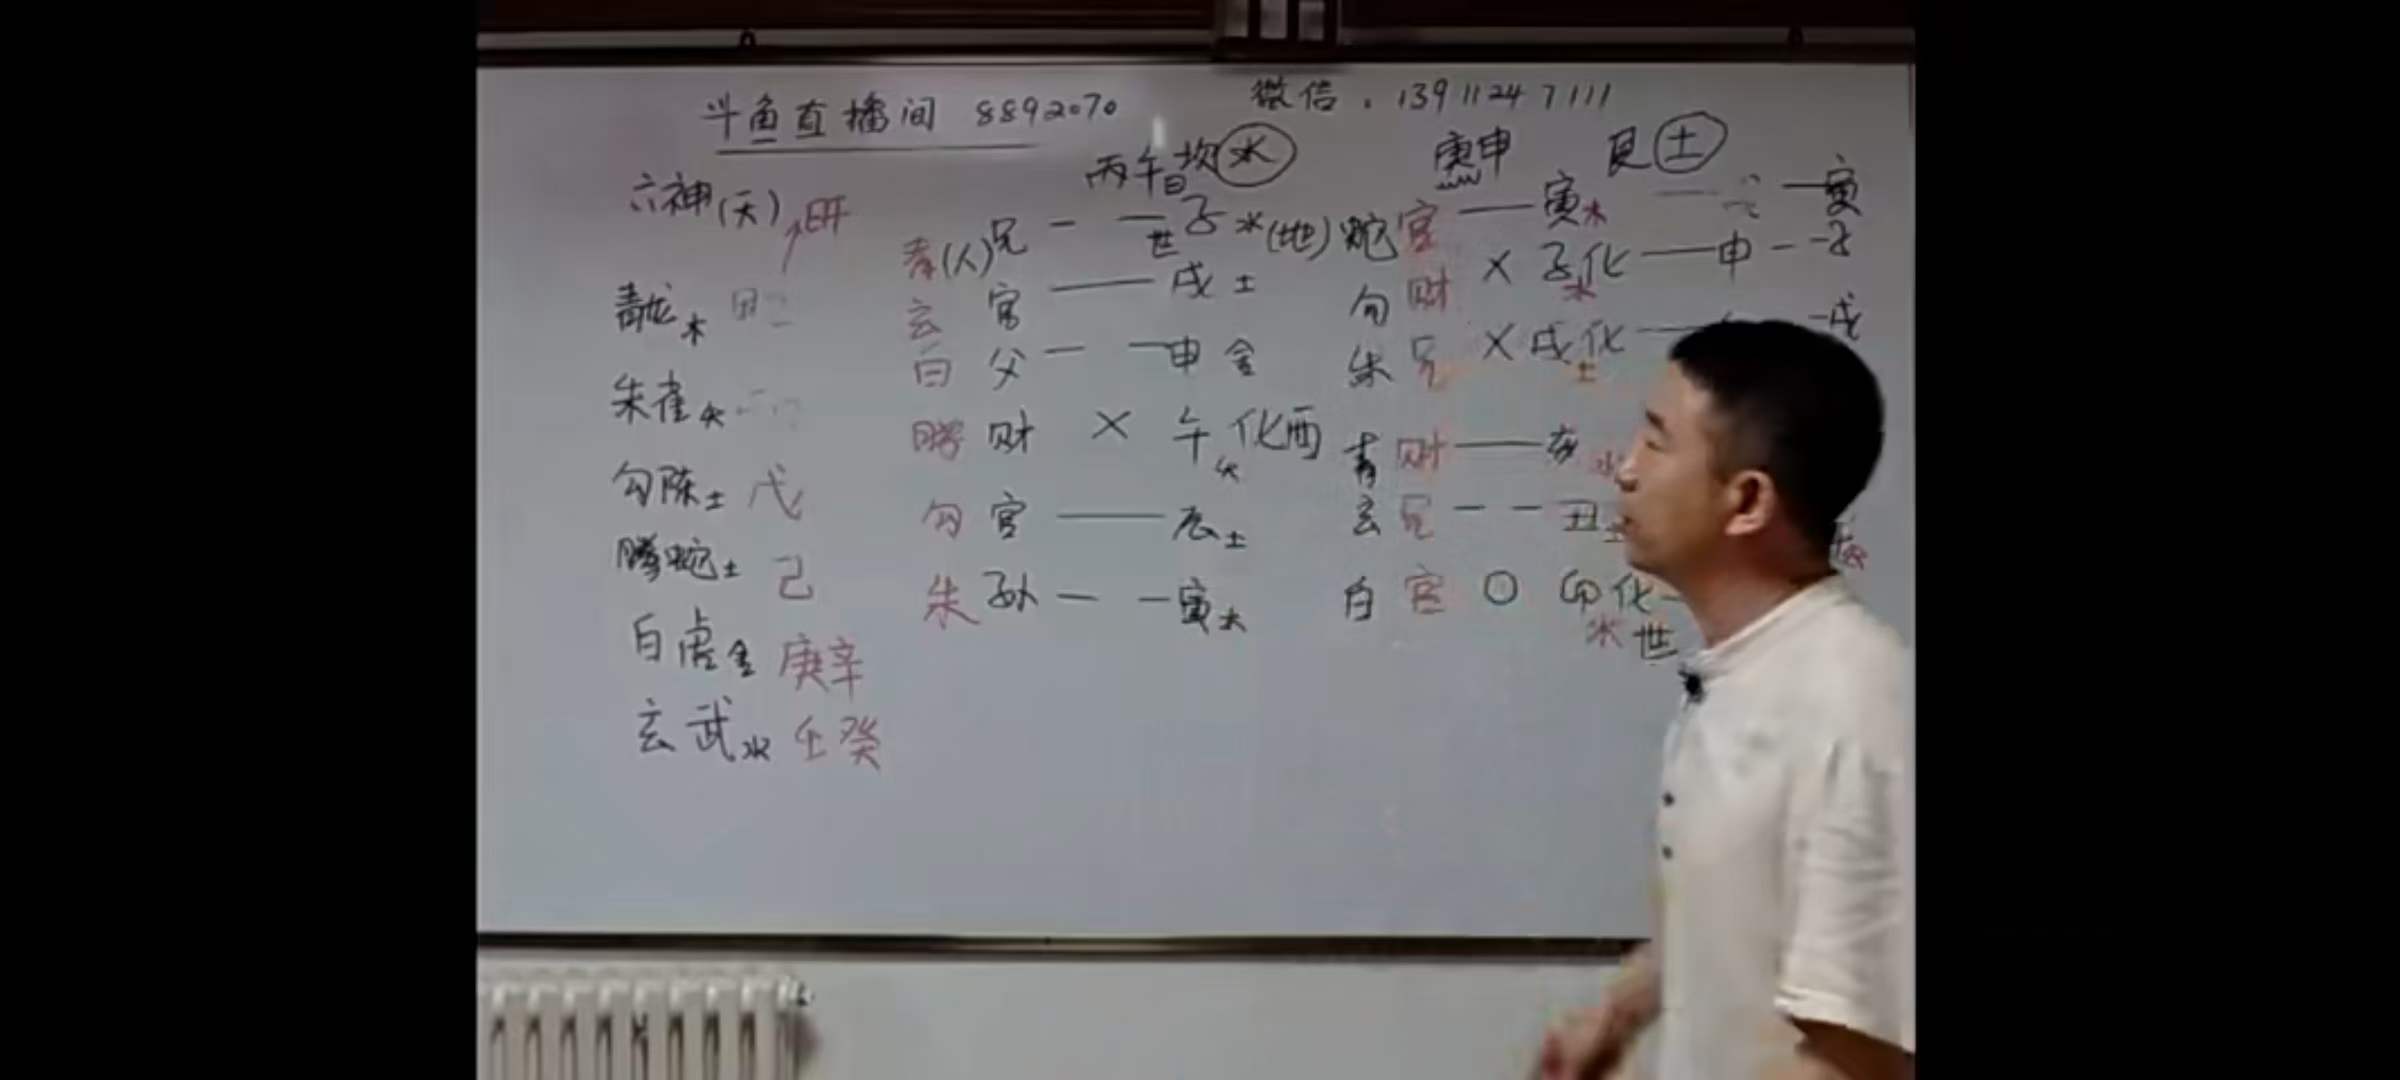 斗鱼直播间 8892070
微信. 13911247111
六神(天)
青龙木
朱雀火
勾陈土 戊
腾蛇土 己
白虎金 庚辛
玄武水 壬癸
丙午日坎水
青(人)兄 世子水(地)
玄 官 戌土
白 父 申金
腾 财 × 午火化酉
勾 官 辰土
朱 孙 寅木
庚申 艮土
蛇 官 寅木 寅
勾 财 × 子水化 申 子
朱 兄 × 戌土化 戌
青 财 亥水
玄 兄 丑土
白 官 〇 卯化 世